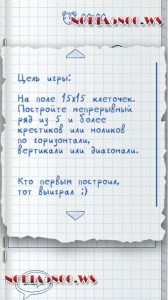 NOKIA5800.WS
Цель игры:
На поле 15х15 клеточек.
Постройте непрерывный
ряд из 5 и более
крестиков или ноликов
по горизонтали,
вертикали или диагонали.
Кто первым построил,
тот выиграл :)
NOKIA5800.WS